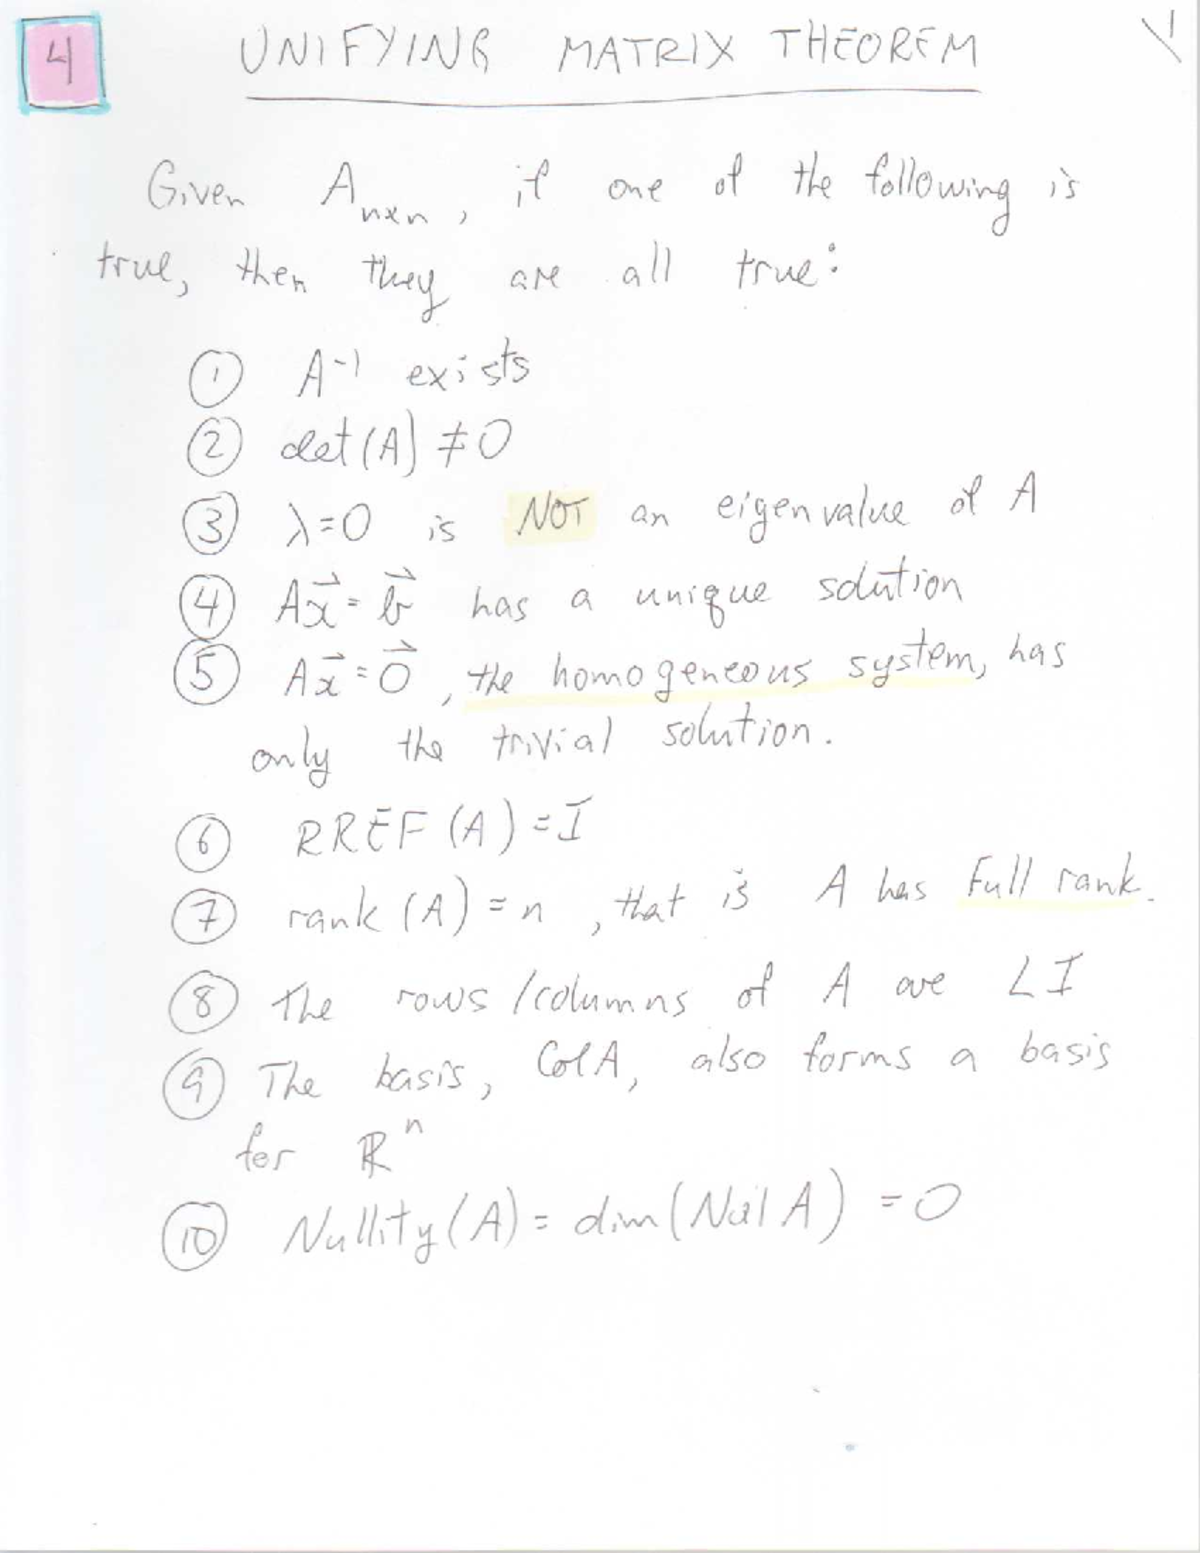 4 UNIFYING MATRIX THEOREM
Given Aₙₓₙ, if one of the following is
true, then they are all true:
① A⁻¹ exists
② det(A) ≠ 0
③ λ=0 is NOT an eigenvalue of A
④ Ax⃗ = b⃗ has a unique solution
⑤ Ax⃗ = 0⃗, the homogeneous system, has
only the trivial solution.
⑥ RREF(A) = I
⑦ rank(A) = n, that is A has Full rank.
⑧ The rows/columns of A are LI
⑨ The basis, Col A, also forms a basis
for ℝⁿ
⑩ Nullity(A) = dim(Nul A) = 0